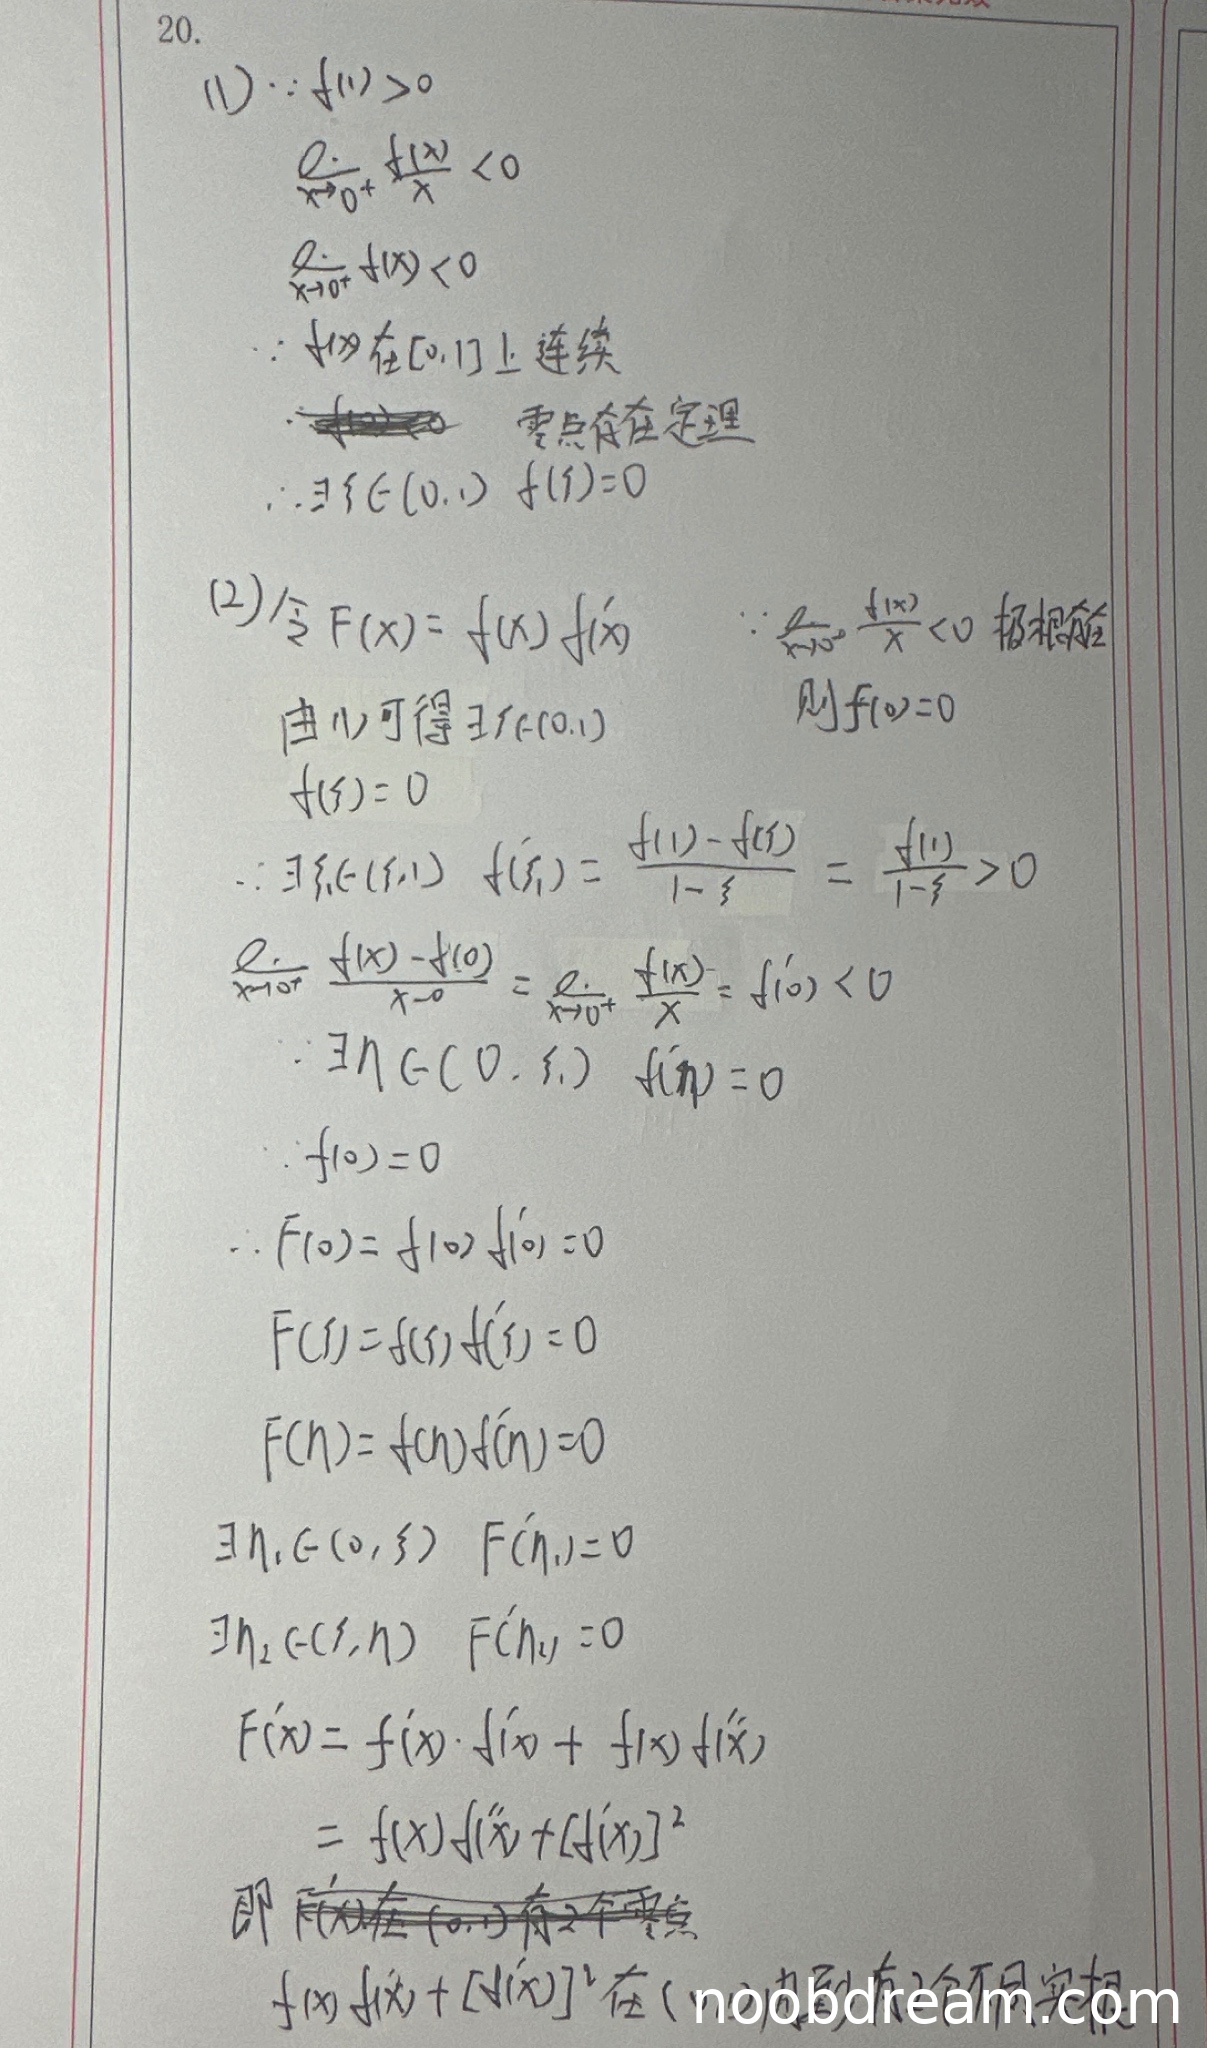 20.
(1) ∵ f(1) > 0
lim x→0⁺ f(x)/x < 0
lim x→0⁺ f(x) < 0
∵ f(x)在[0,1]上连续
∴ 零点存在定理
∴ ∃ξ∈(0,1) f(ξ)=0
(2) 令 F(x) = f(x) f'(x)
∵ lim x→0 f(x)/x < 0 极限存在
则 f(0)=0
由(1)可得 ∃ξ∈(0,1)
f(ξ) = 0
∴ ∃ξ₁∈(ξ,1) f'(ξ₁) = (f(1)-f(ξ))/(1-ξ) = f(1)/(1-ξ) > 0
lim x→0⁺ (f(x)-f(0))/(x-0) = lim x→0⁺ f(x)/x = f'(0) < 0
∵ ∃η∈(0,ξ₁) f'(η) = 0
∵ f(0) = 0
∴ F(0) = f(0) f'(0) = 0
F(ξ) = f(ξ) f'(ξ) = 0
F(η) = f(η) f'(η) = 0
∃η₁∈(0,ξ) F'(η₁) = 0
∃η₂∈(ξ,η) F'(η₂) = 0
F'(x) = f'(x)·f'(x) + f(x) f''(x)
= f(x) f''(x) + [f'(x)]²
即 F'(x)在(0,1)有2个零点
f(x) f''(x) + [f'(x)]² 在(
noobdream.com